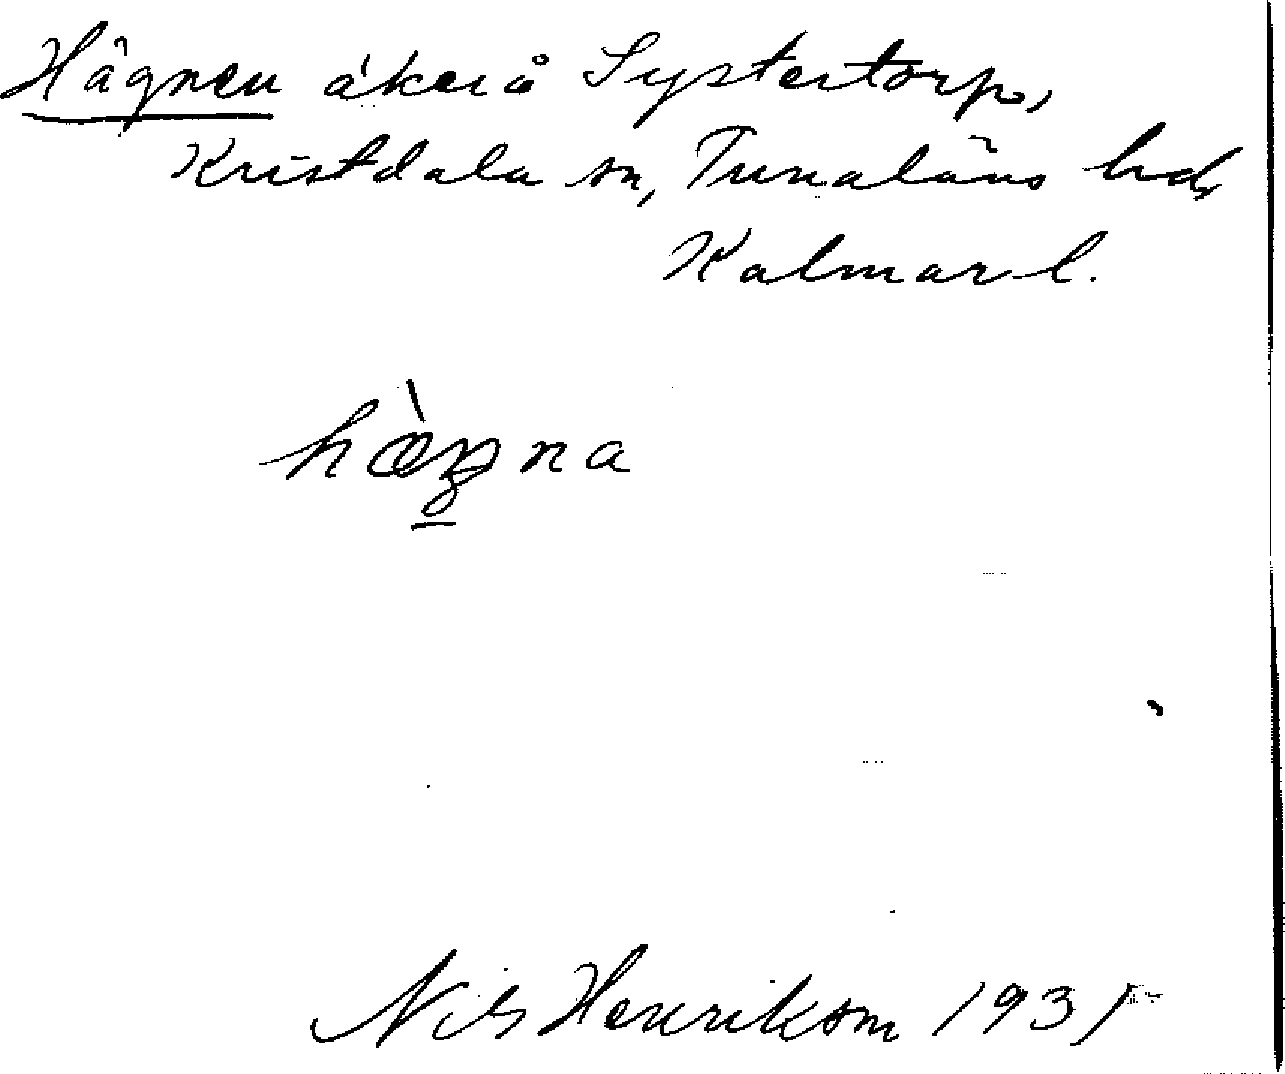 Hägnen åker å Systertorp,
Kristdala sn, Tunaläns hd,
Kalmar l.
hæ̀gna
Nils Henrikson 1935